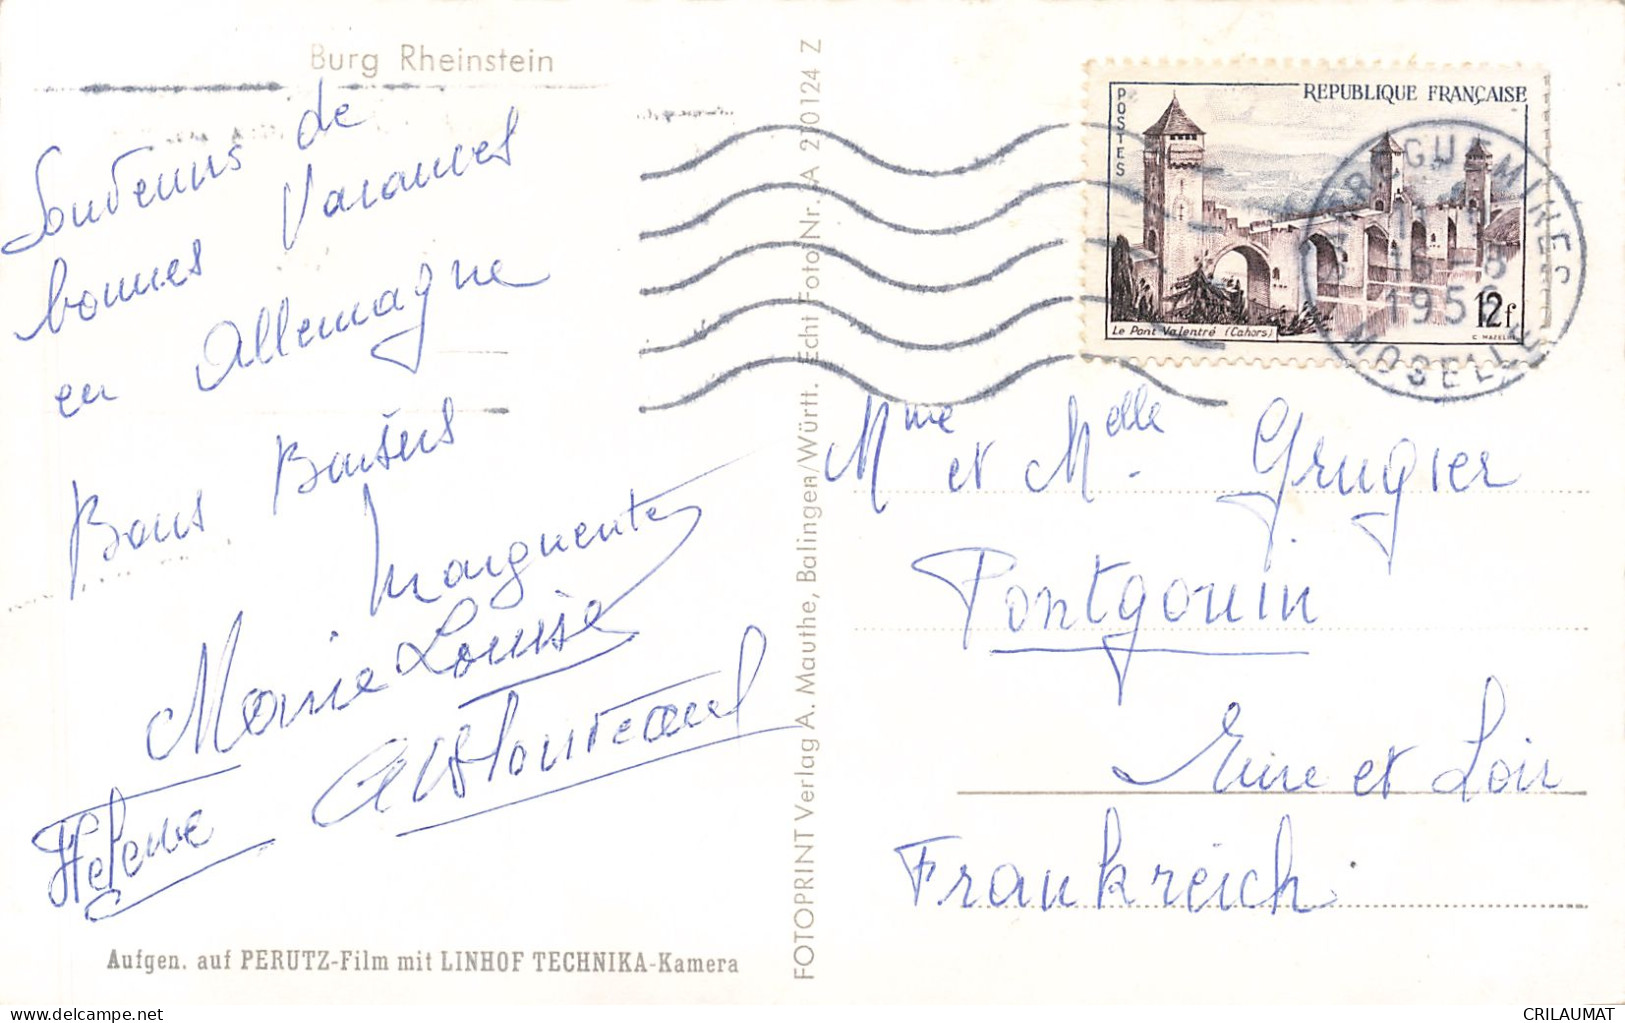 Burg Rheinstein
Souvenirs de
bonnes Vacances
en Allemagne
Bons Baisers
Marguerite
Marie Louise
Helene
Aufgen. auf PERUTZ-Film mit LINHOF TECHNIKA-Kamera
FOTOPRINT Verlag A. Mauthe, Balingen/Württ. Echt Foto Nr. A 210124 Z
POSTES
REPUBLIQUE FRANÇAISE
Le Pont Valentré (Cahors)
12f
C. MAZELIN
SARREGUEMINES
1956
MOSELLE
Mme et Melle Grugier
Pontgouin
Eure et Loir
Frankreich
CRILAUMAT